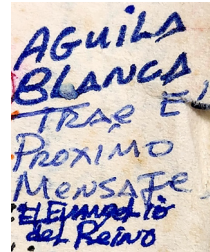 AGUILA
BLANCA
TRAE El
PROXIMO
MENSAJE,
El Evangelio
del Reino